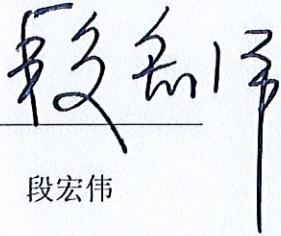 段宏伟
段宏伟